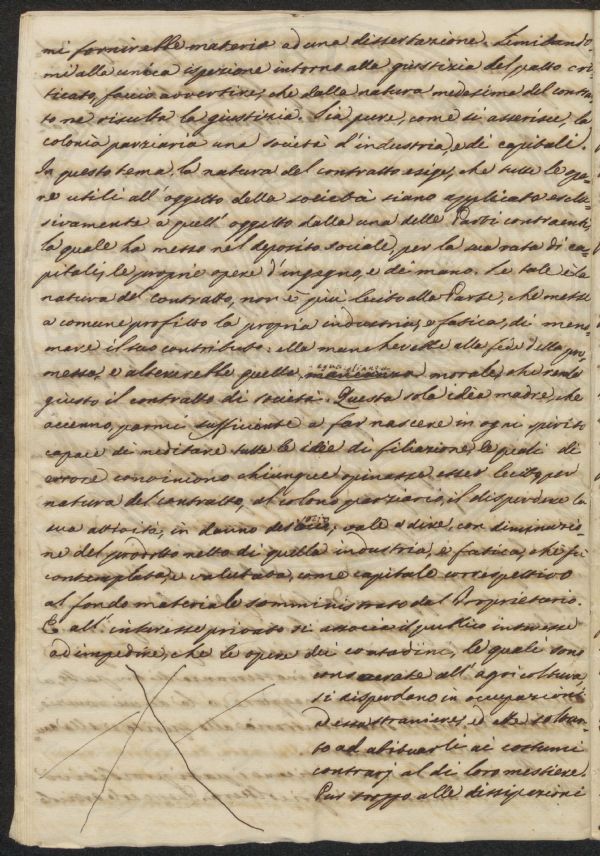 mi fornirebbe materia ad una dissertazione. Limitando=
mi alla unica ispezione intorno alla giustizia del patto cri=
ticato, faccio avvertire, che dalla natura medesima del contrat=
to ne risulta la giustizia. Sia pure, come si asserisce, la
colonia parziaria una società d'industria, e di capitali.
In questo tema, la natura del contratto esige, che tutte le ope=
re utili all'oggetto della società siano applicate esclu=
sivamente a quell'oggetto dalla una delle Parti contraenti,
la quale ha messo nel deposito sociale, per la sua rata di ca=
pitali, le proprie opere d'ingegno, e de mano. Se tale è la
natura del contratto, non è più lecito alla Parte, che mette
a comune profitto la propria industria, e fatica, di meno=
mare il suo contributo: ella mancherebbe alla fede della pro=
messa, e altererebbe quella
eguaglianza
mancanza morale, che rende
giusto il contratto di società. Questa sola idea madre, che
accenno, parmi sufficiente a far nascere in ogni spirito
capace di meditare tutte le idee di filiazione, le quali di
errore convincono chiunque opinasse esser lecito, per
natura del contratto, al colono parziario, il disperdere la
sua attività, in danno del
socio
, vale a dire, con diminuzio=
ne del prodotto netto di quella industria, e fatica, che fu
contemplata, e valutata, come capitale correspettivo
al fondo materiale somministrato dal Proprietario.
E all'interesse privato si associa il pubblico interesse
ad impedire, che le opere dei contadini, le quali sono
consacrate all'agricoltura,
si disperdano in occupazioni
ad essa straniere, ed atte soltan=
to ad abituarli ai costumi
contrarj al di loro mestiere.
Pur troppo alle dissipazioni